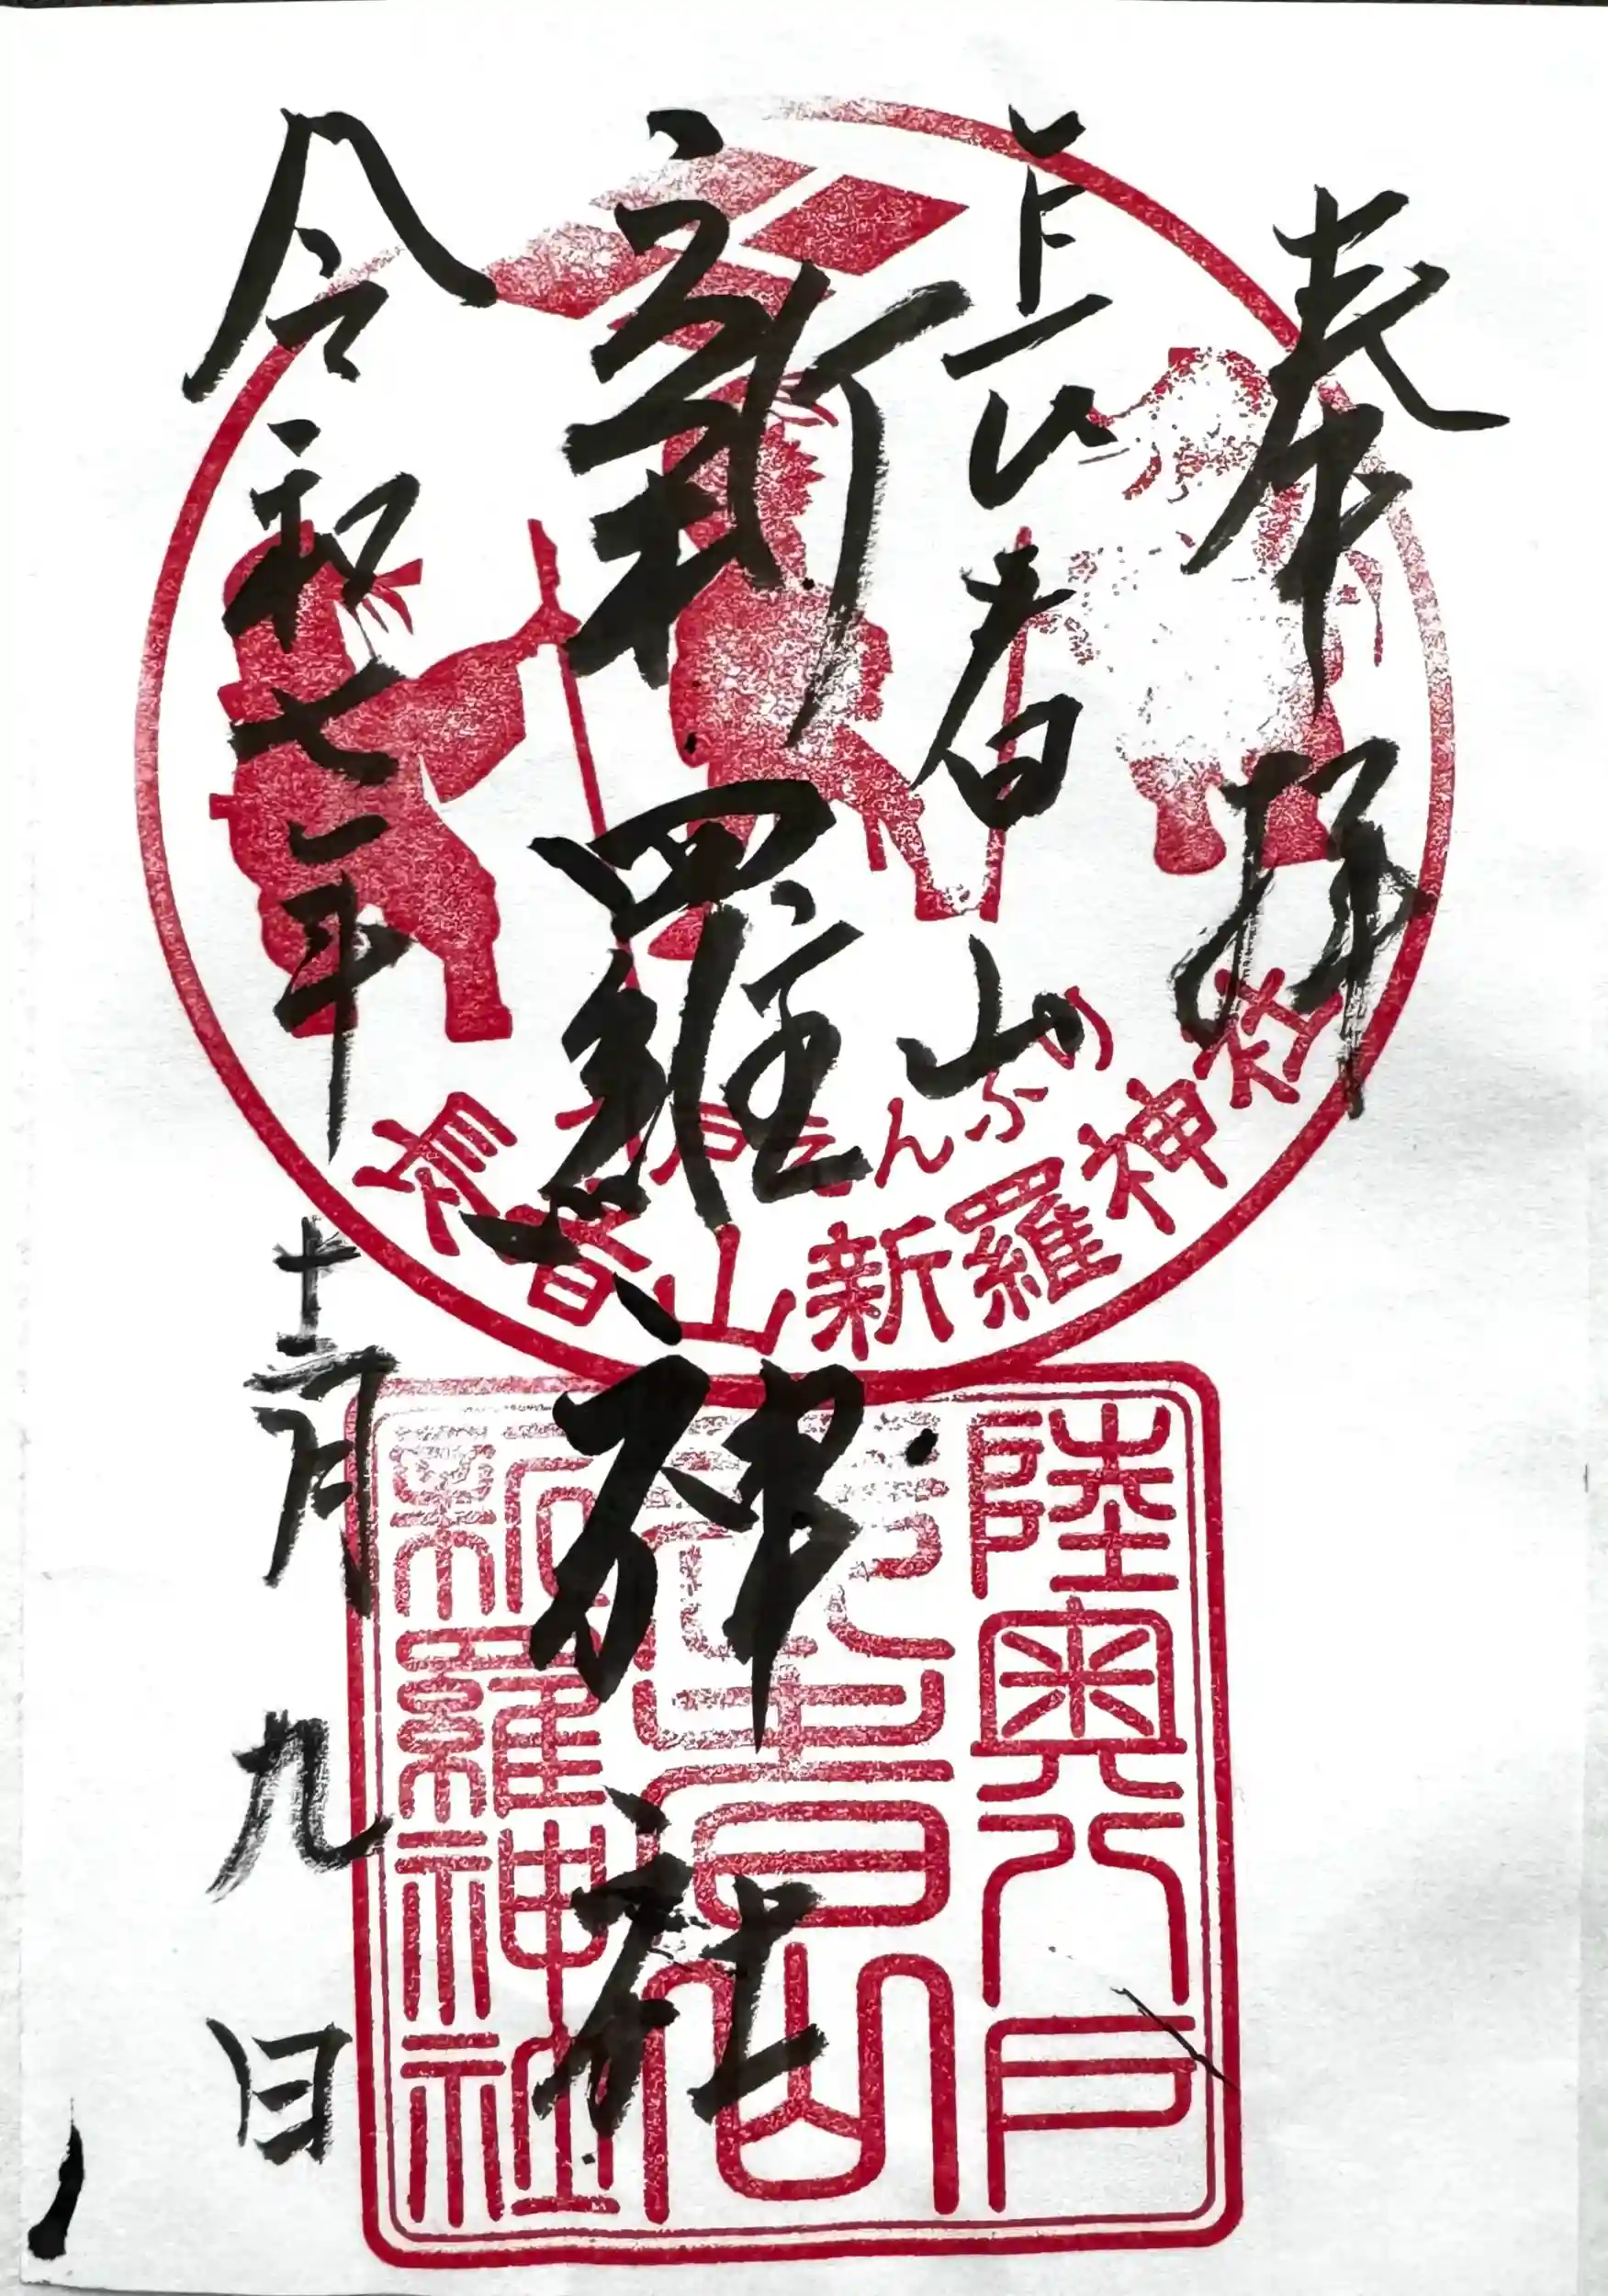 奉拝
長者山
新羅神社
令和七年十二月九日
八戸えんぶり
長者山新羅神社
陸奥八戸
長者山
新羅神社